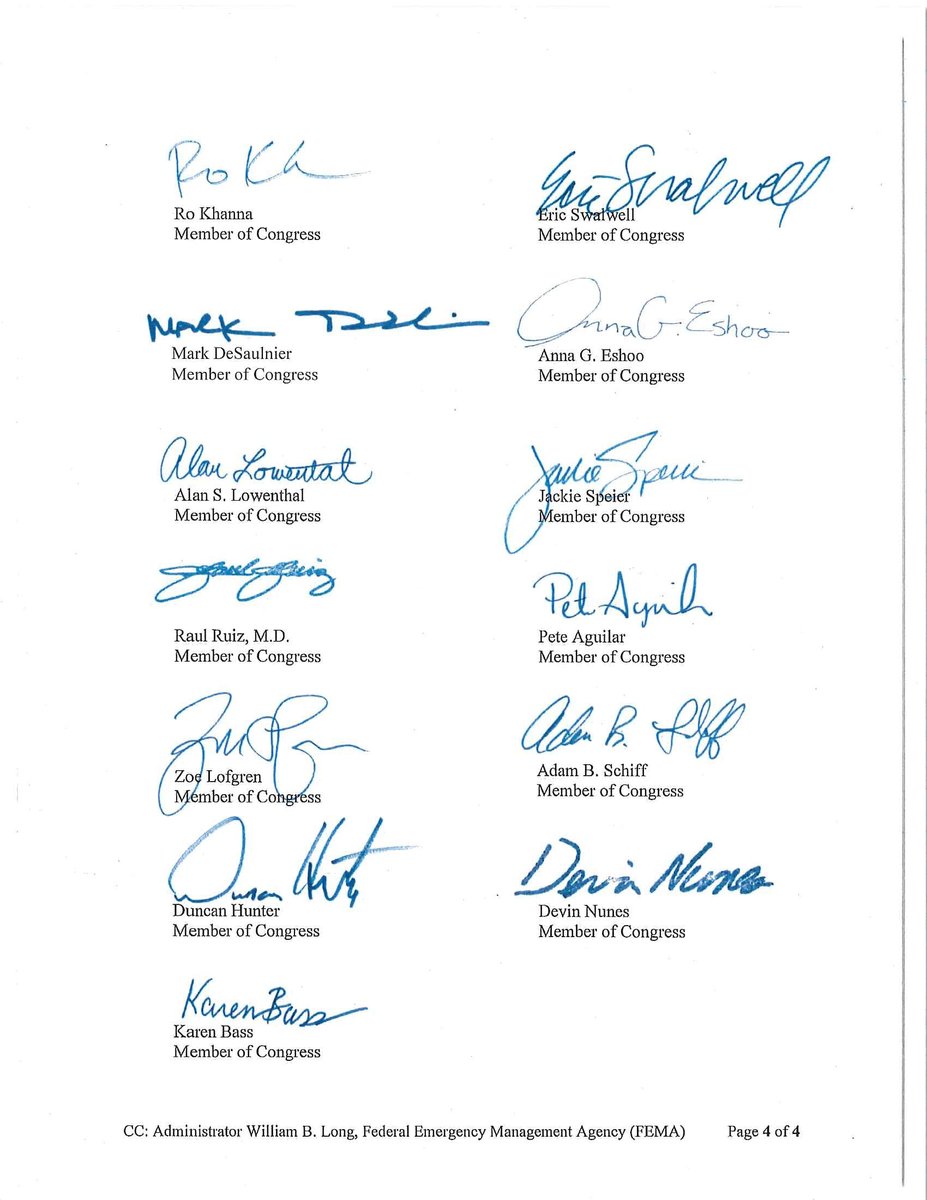 Ro Kh
Ro Khanna
Member of Congress
Eric Swalwell
Eric Swalwell
Member of Congress
Mark
Mark DeSaulnier
Member of Congress
Anna G. Eshoo
Anna G. Eshoo
Member of Congress
Alan Lowenthal
Alan S. Lowenthal
Member of Congress
Jackie Speier
Jackie Speier
Member of Congress
Raul Ruiz
Raul Ruiz, M.D.
Member of Congress
Pete Aguilar
Pete Aguilar
Member of Congress
Zoe Lofgren
Member of Congress
Adam B. Schiff
Adam B. Schiff
Member of Congress
Duncan Hunter
Duncan Hunter
Member of Congress
Devin Nunes
Devin Nunes
Member of Congress
Karen Bass
Karen Bass
Member of Congress
CC: Administrator William B. Long, Federal Emergency Management Agency (FEMA) Page 4 of 4